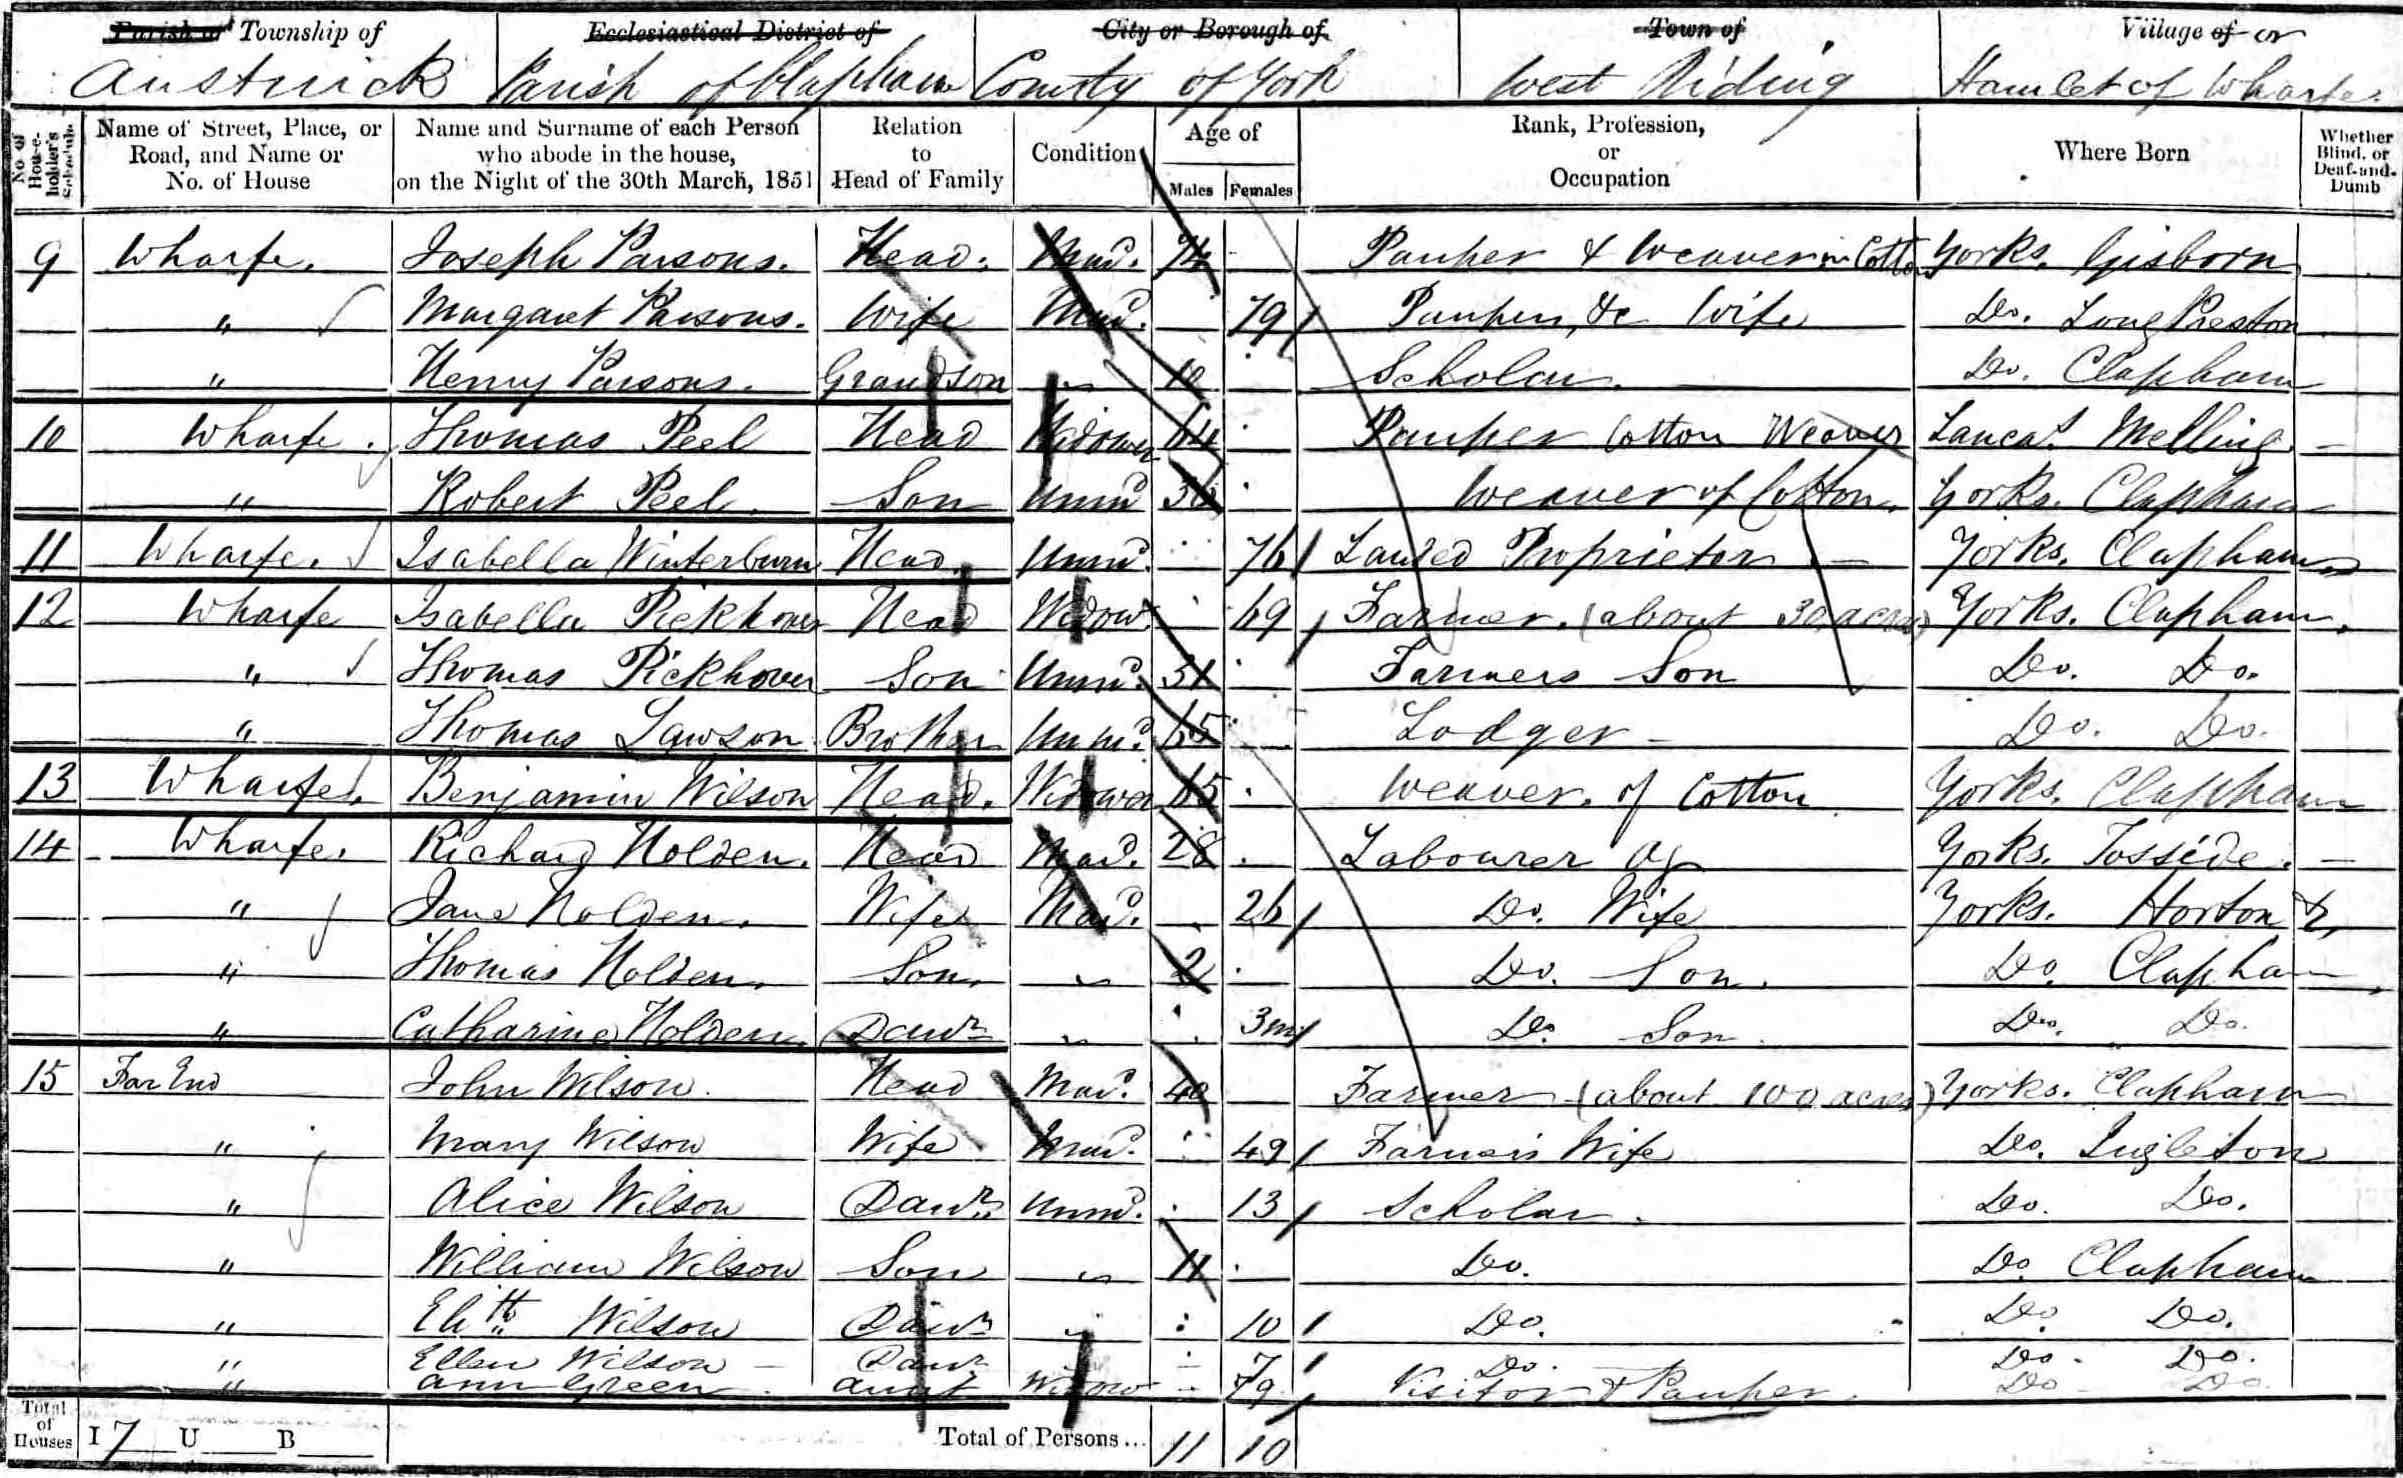 Parish of Township of | Ecclesiastical District of | City or Borough of | Town of | Village of or
Austwick | Parish of Clapham | County of York | West Riding | Hamlet of Wharfe
No. of House-holder's Schedule | Name of Street, Place, or Road, and Name or No. of House | Name and Surname of each Person who abode in the house, on the Night of the 30th March, 1851 | Relation to Head of Family | Condition | Age of Males | Females | Rank, Profession, or Occupation | Where Born | Whether Blind, or Deaf-and-Dumb
9 Wharfe. Joseph Parsons. Head. Mar. 74 Pauper & Weaver in Cotton Yorks. Gisborn
" Margaret Parsons. Wife Mar. 79 Pauper, &c Wife Do. Long Preston
" Henry Parsons. Grandson " 10 Scholar. Do. Clapham
10 Wharfe. Thomas Peel Head Widower 64 Pauper Cotton Weaver Lancas. Melling
" Robert Peel. Son Unm 36 Weaver of Cotton. Yorks. Clapham
11 Wharfe. Isabella Winterburn Head Unm. 76 Landed Proprietor Yorks. Clapham
12 Wharfe Isabella Pickhover Head Widow 69 Farmer. (about 30 acres) Yorks. Clapham.
" Thomas Pickhover Son Unm. 31 Farmers Son Do. Do.
" Thomas Lawson Brother Unm. 65 Lodger Do. Do.
13 Wharfe. Benjamin Wilson Head. Widower 65 Weaver. of Cotton Yorks. Clapham
14 Wharfe. Richard Holden. Head Mar. 28 Labourer Ag Yorks. Tosside.
" Jane Holden. Wife Mar. 26 Do. Wife Yorks. Horton
" Thomas Holden. Son. " 2 Do. Son. Do. Clapham
" Catharine Holden. Daur " 3m Do. Son Do. Do.
15 Far End John Wilson. Head Mar. 40 Farmer (about 100 acres) Yorks. Clapham
" Mary Wilson Wife Mar. 49 Farmer's Wife Do. Ingleton
" Alice Wilson Daur. Unm. 13 Scholar. Do. Do.
" William Wilson Son " 11 Do. Do. Clapham
" Elizth Wilson Daur " 10 Do. Do. Do.
" Ellen Wilson Daur 7 Do. Do. Do.
" Ann Green Aunt Widow 79 Visitor & Pauper. Do Do
Total of Houses I 7 U B Total of Persons... 11 10